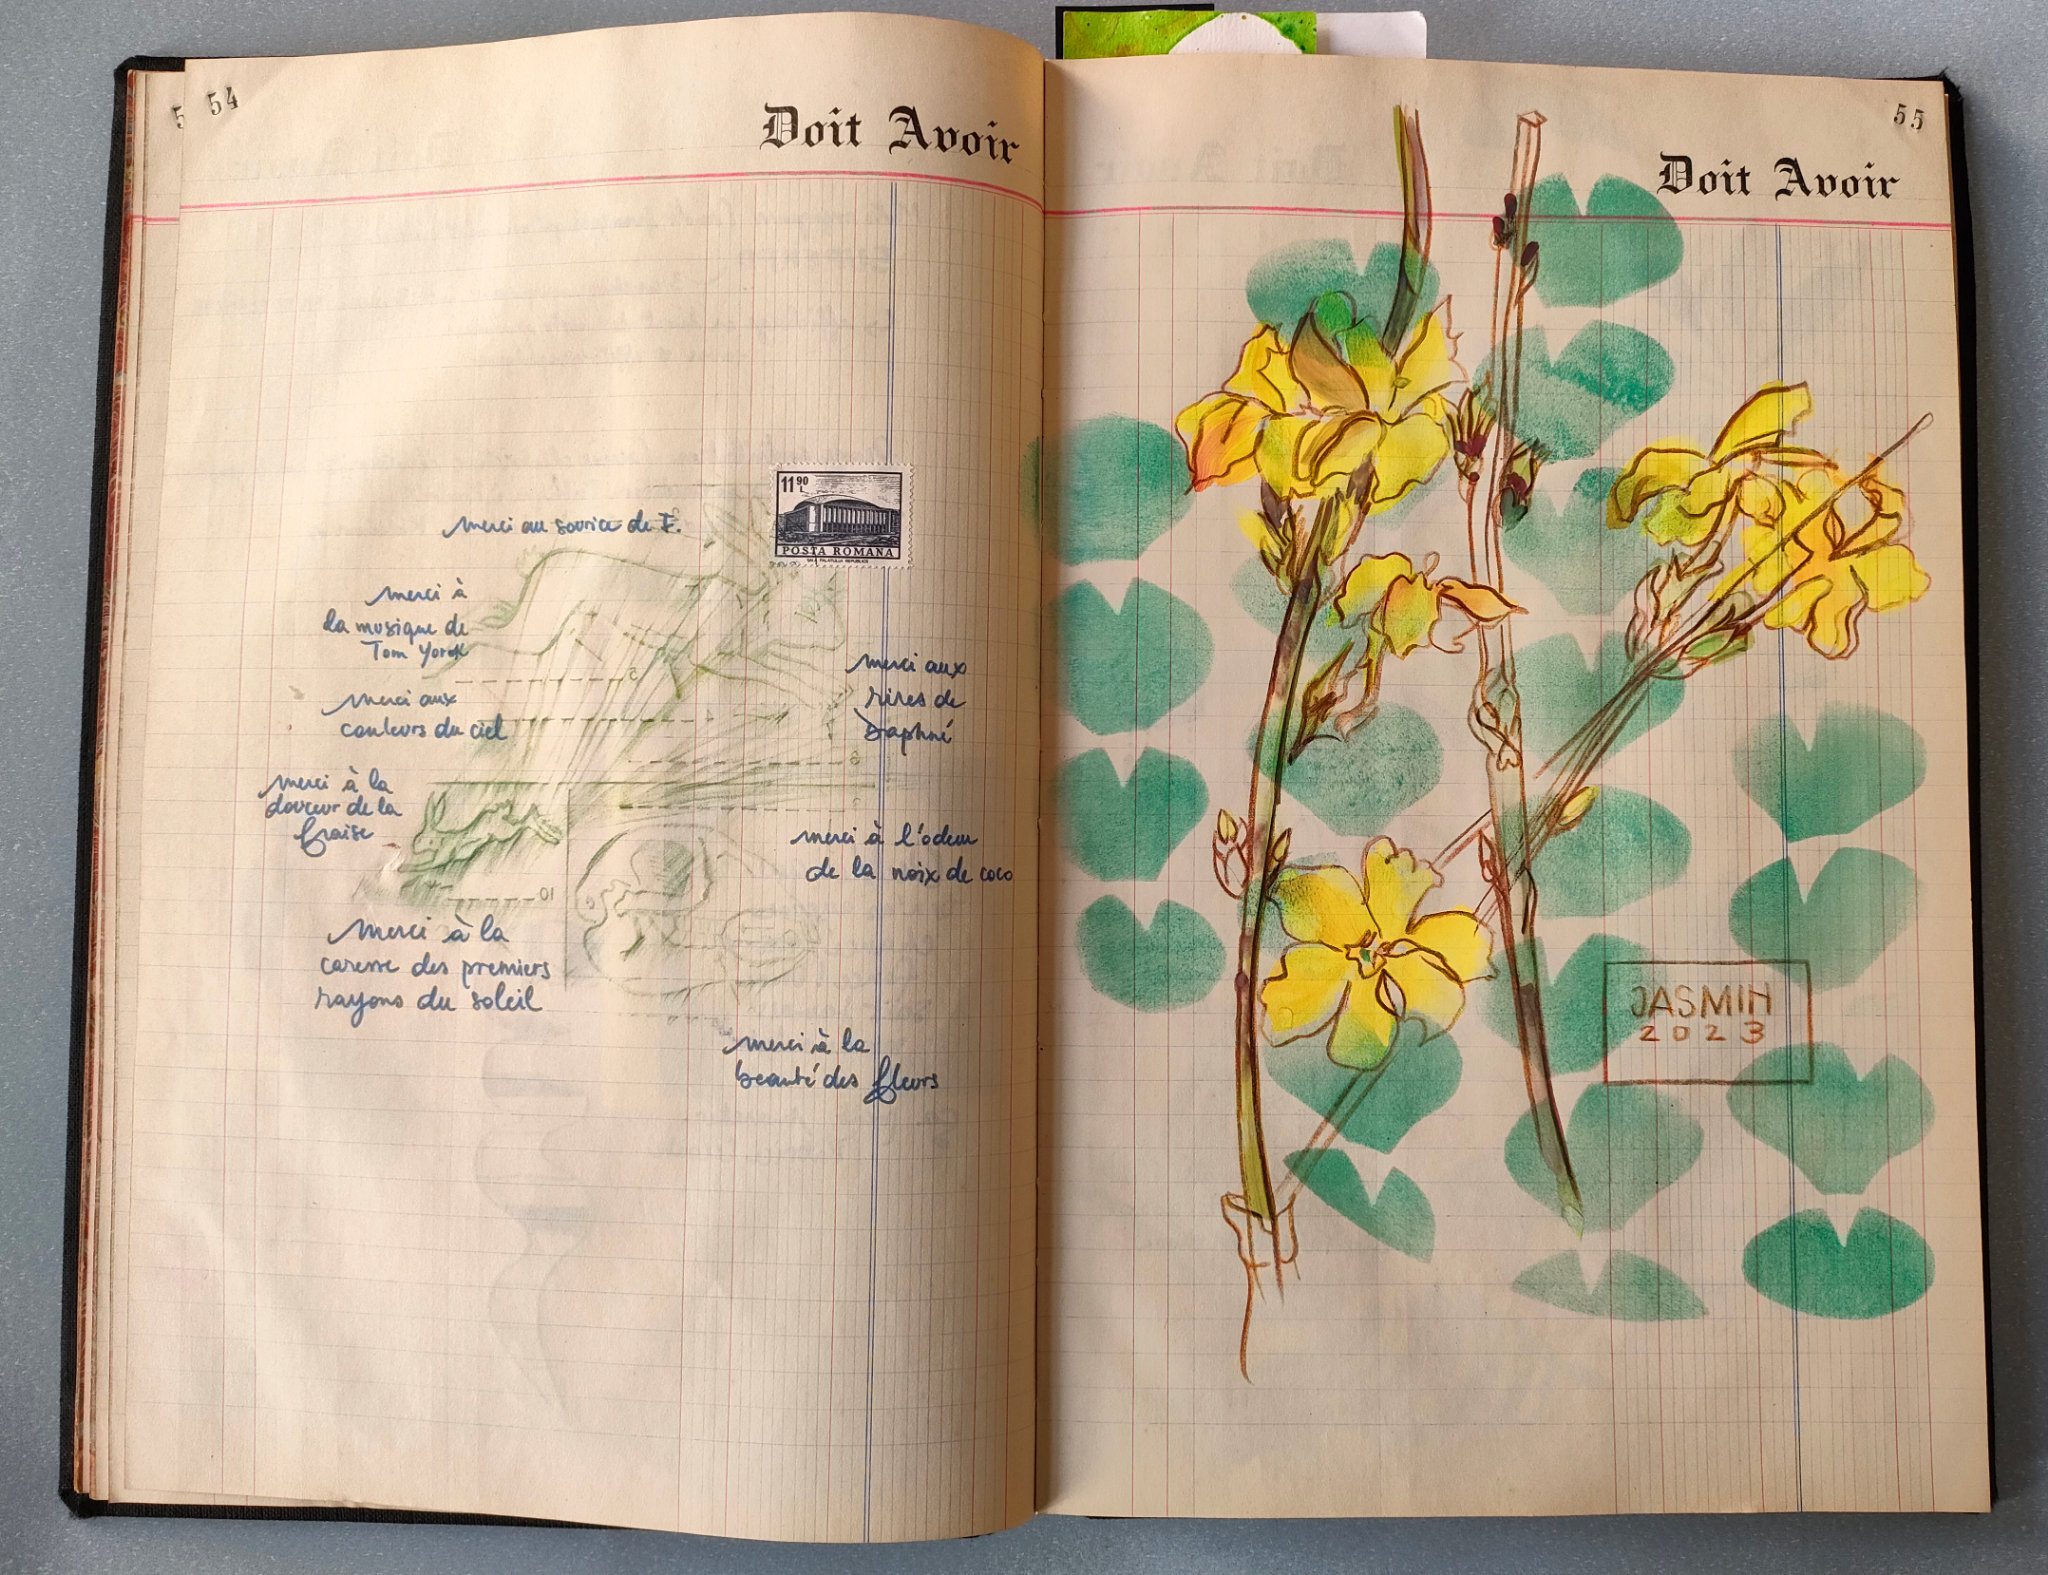 54
Doit Avoir
11 90 L
POSTA ROMANA
merci au sourire de F.
merci à
la musique de
Tom Yorck
merci aux
couleurs du ciel
merci à la
douceur de la
fraise
10
merci à la
caresse des premiers
rayons du soleil
merci aux
rires de
Daphné
merci à l'odeur
de la noix de coco
merci à la
beauté des fleurs
55
Doit Avoir
JASMIN
2023